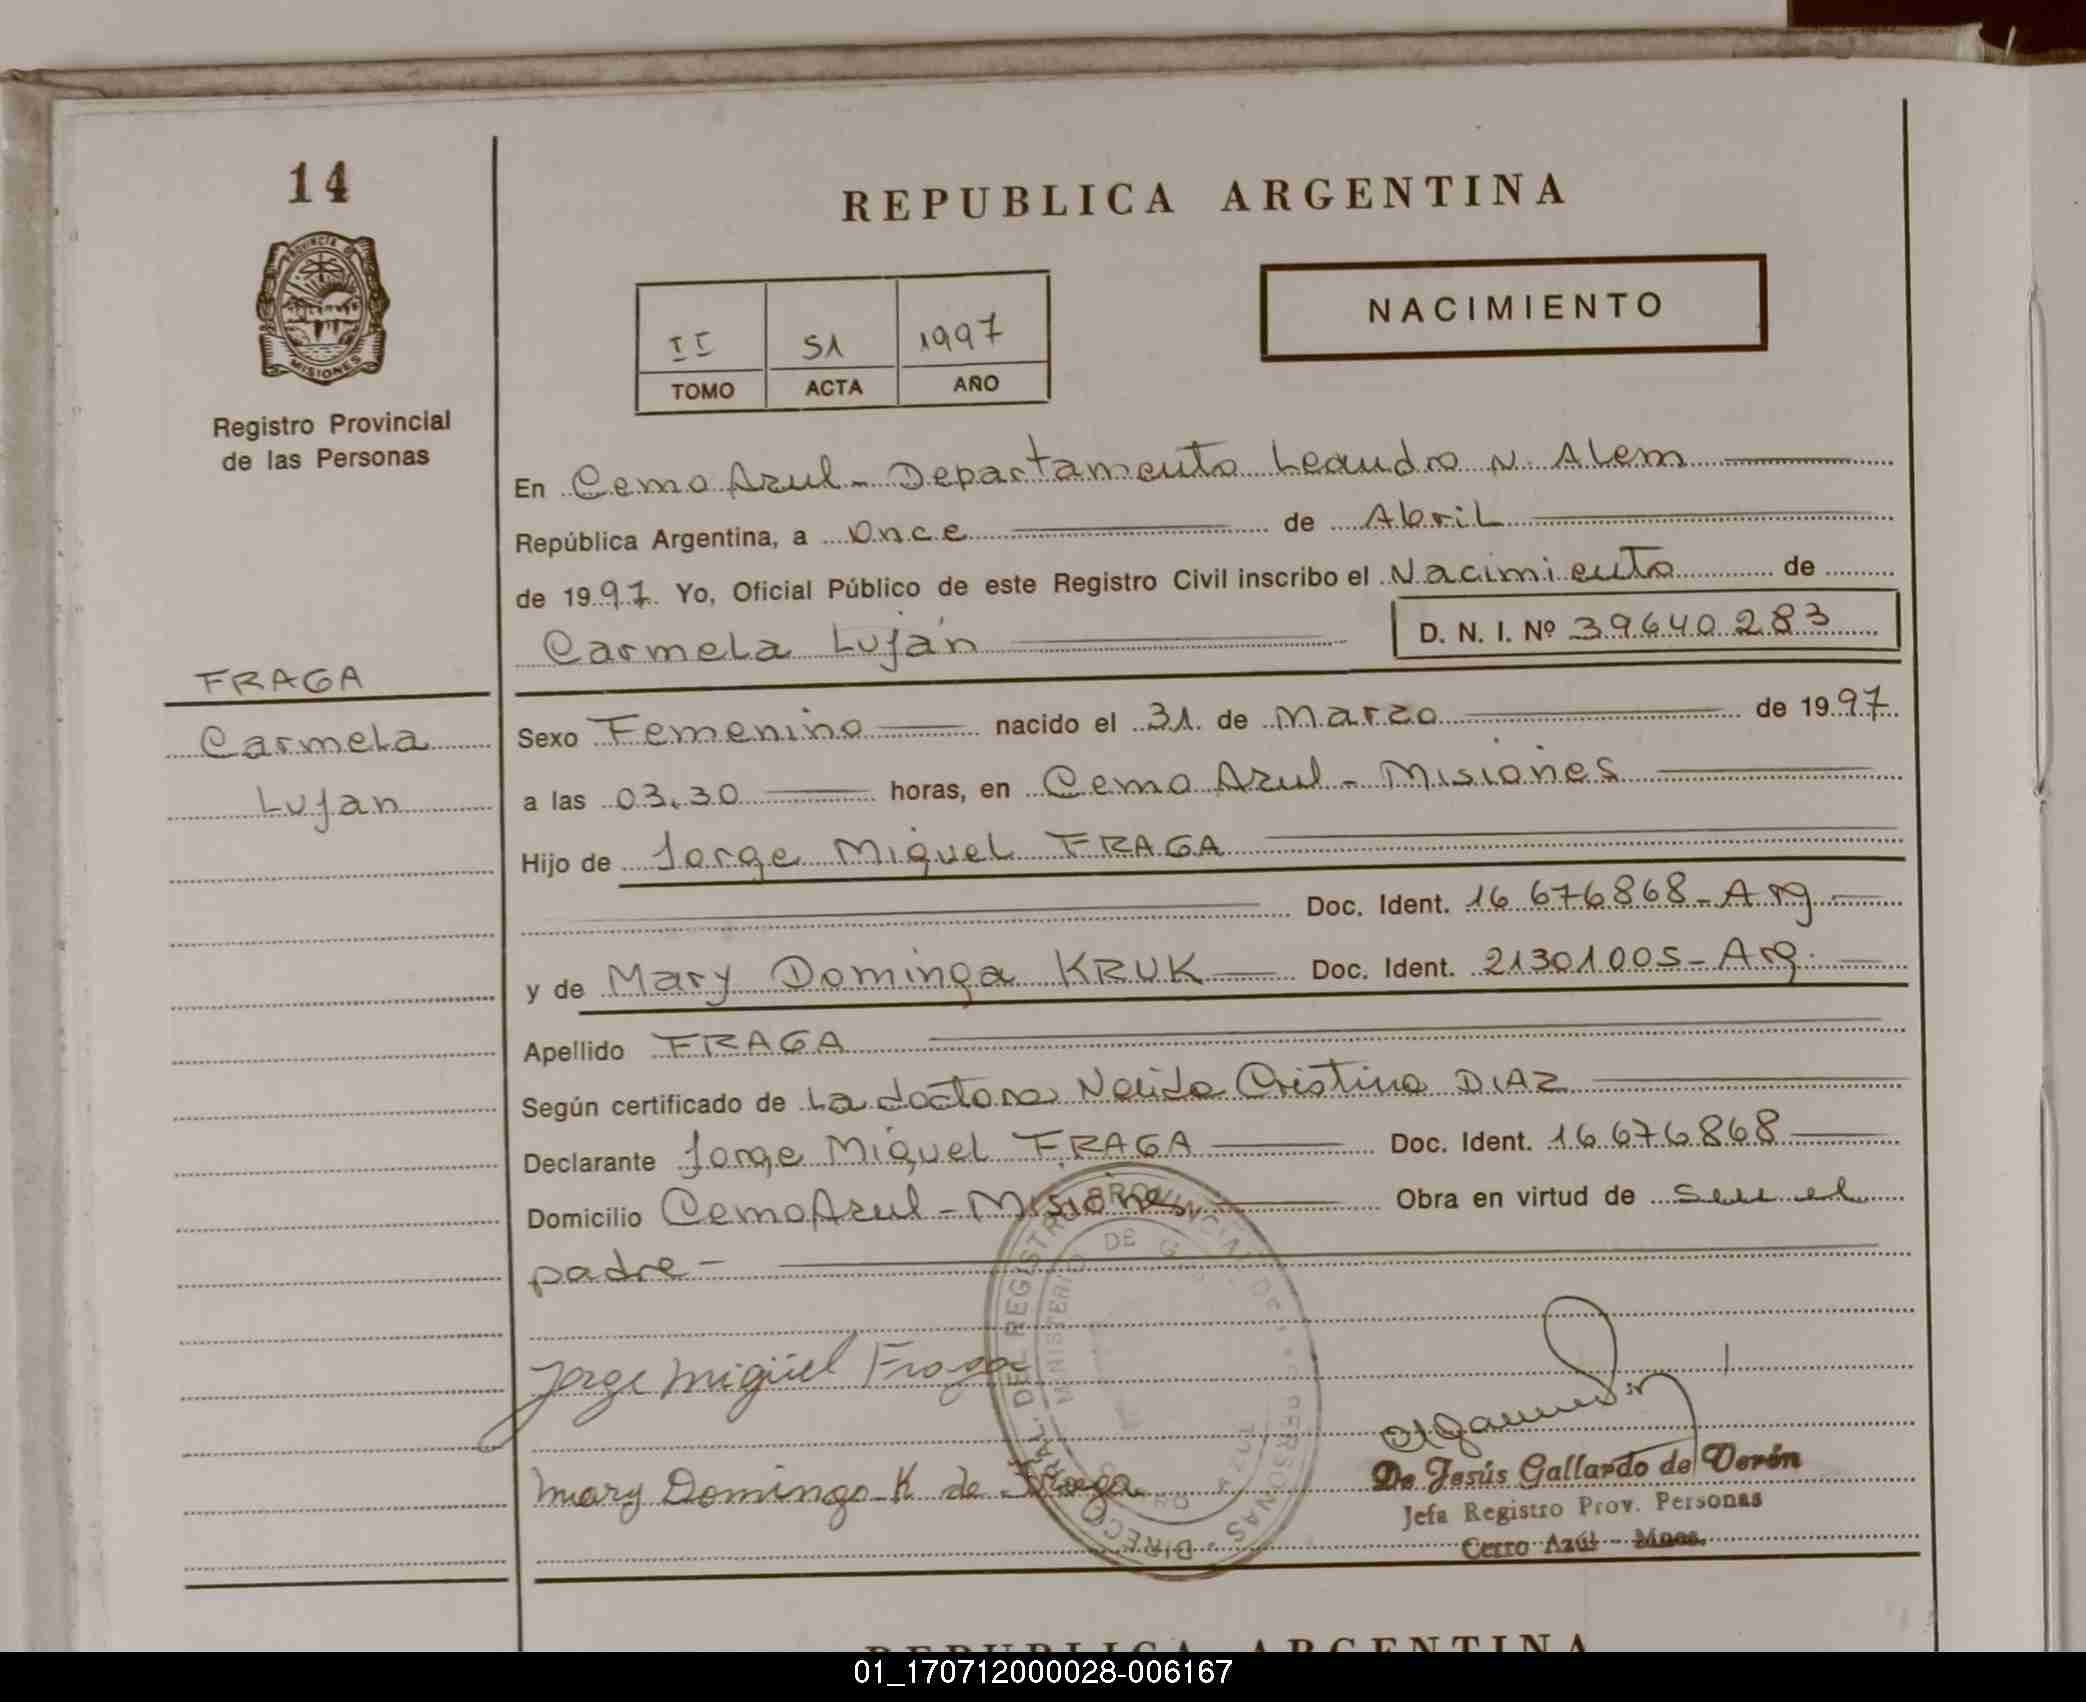 14
REPUBLICA ARGENTINA
PROVINCIA DE
MISIONES
Registro Provincial
de las Personas
II 51 1997
TOMO ACTA AÑO
NACIMIENTO
En Cerro Azul - Departamento Leandro N. Alem
República Argentina, a Once de Abril
de 1997. Yo, Oficial Público de este Registro Civil inscribo el Nacimiento de
Carmela Luján D. N. I. Nº 39640283
FRAGA
Carmela
Lujan
Sexo Femenino nacido el 31 de Marzo de 1997
a las 03.30 horas, en Cerro Azul - Misiones
Hijo de Jorge Miguel FRAGA
Doc. Ident. 16 676868 - Arg
y de Mary Dominga KRUK Doc. Ident. 21301005 - Arg.
Apellido FRAGA
Según certificado de La doctora Nelida Cristina DIAZ
Declarante Jorge Miguel FRAGA Doc. Ident. 16 676868
Domicilio Cerro Azul - Misiones Obra en virtud de ser el
padre -
Jorge Miguel Fraga
Mary Dominga K de Fraga
De Jesús Gallardo de Verón
Jefa Registro Prov. Personas
Cerro Azúl - Mnes.
REPUBLICA ARGENTINA
01_170712000028-006167